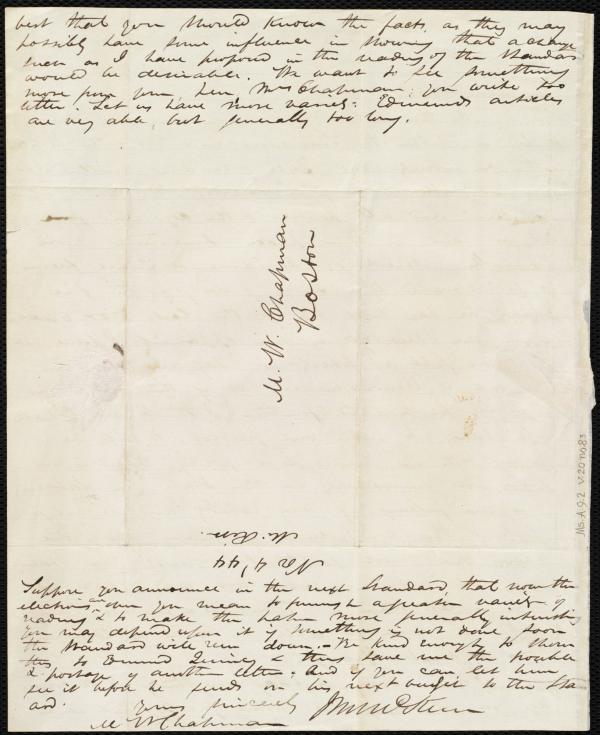 best that you should know the facts, as they may
possibly have some influence in showing that a change
such as I have proposed in the reading of the Standard
would be desirable. We want to see something
more from you, too, Mrs Chapman; you write too
little. Let us have more variety: Edmunds articles
are very able, but generally too long.
M. W. Chapman
Boston
Nov 4, 44
Suppose you announce in the next Standard, that now the
elections are over you mean to furnish a greater variety of
reading & to make the paper more generally interesting
You may depend upon it if something is not done soon
the Standard will run down. - Be kind enough to show
this to Edmund Quincy & thus save me the trouble
& postage of another letter. And if you can, let him
see it before he sends on his next budget to the Stan
ard.
Yours sincerely
M W Chapman
Ms. A. 9. 2 v. 20 no. 83